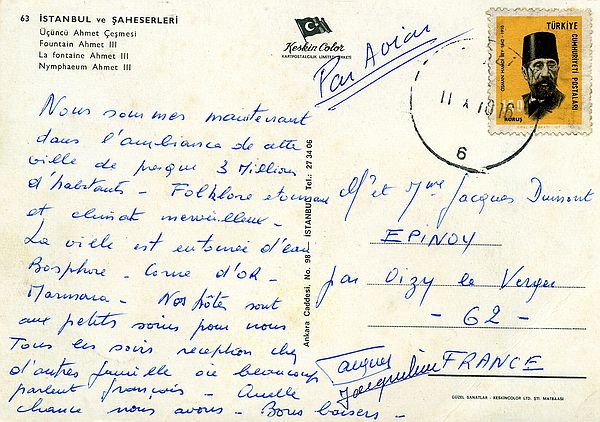 63 İSTANBUL ve ŞAHESERLERİ
Üçüncü Ahmet Çeşmesi
Fountain Ahmet III
La fontaine Ahmet III
Nymphaeum Ahmet III
Keskin Color
KARTPOSTALCILIK LİMİTED ŞİRKETİ
Par Avion
TÜRKİYE
CUMHURİYETİ POSTALARI
OSMAN HAMDİ BEY 1842 - 1910
KURUŞ
11 X 70 16
6
Nous sommes maintenant
dans l'ambiance de cette
ville de presque 3 Millions
d'habitants - Folklore etonnant
et climat merveilleux -
La ville est entourée d'eau
Bosphore - Corne d'OR -
Marmara - Nos hôtes sont
aux petits soins pour nous
Tous les soirs reception chez
d'autres famille où beaucoup
parlent français - Quelle
chance nous avons - Bons baisers -
Jacqueline
Ankara Caddesi, No. 98 - İSTANBUL Tel.: 27 34 06
Mr et Mme Jacques Dumont
EPINOY
par Oizy le Verger
- 62 -
FRANCE
GÜZEL SANATLAR - KESKİNCOLOR LTD. ŞTİ. MATBAASI